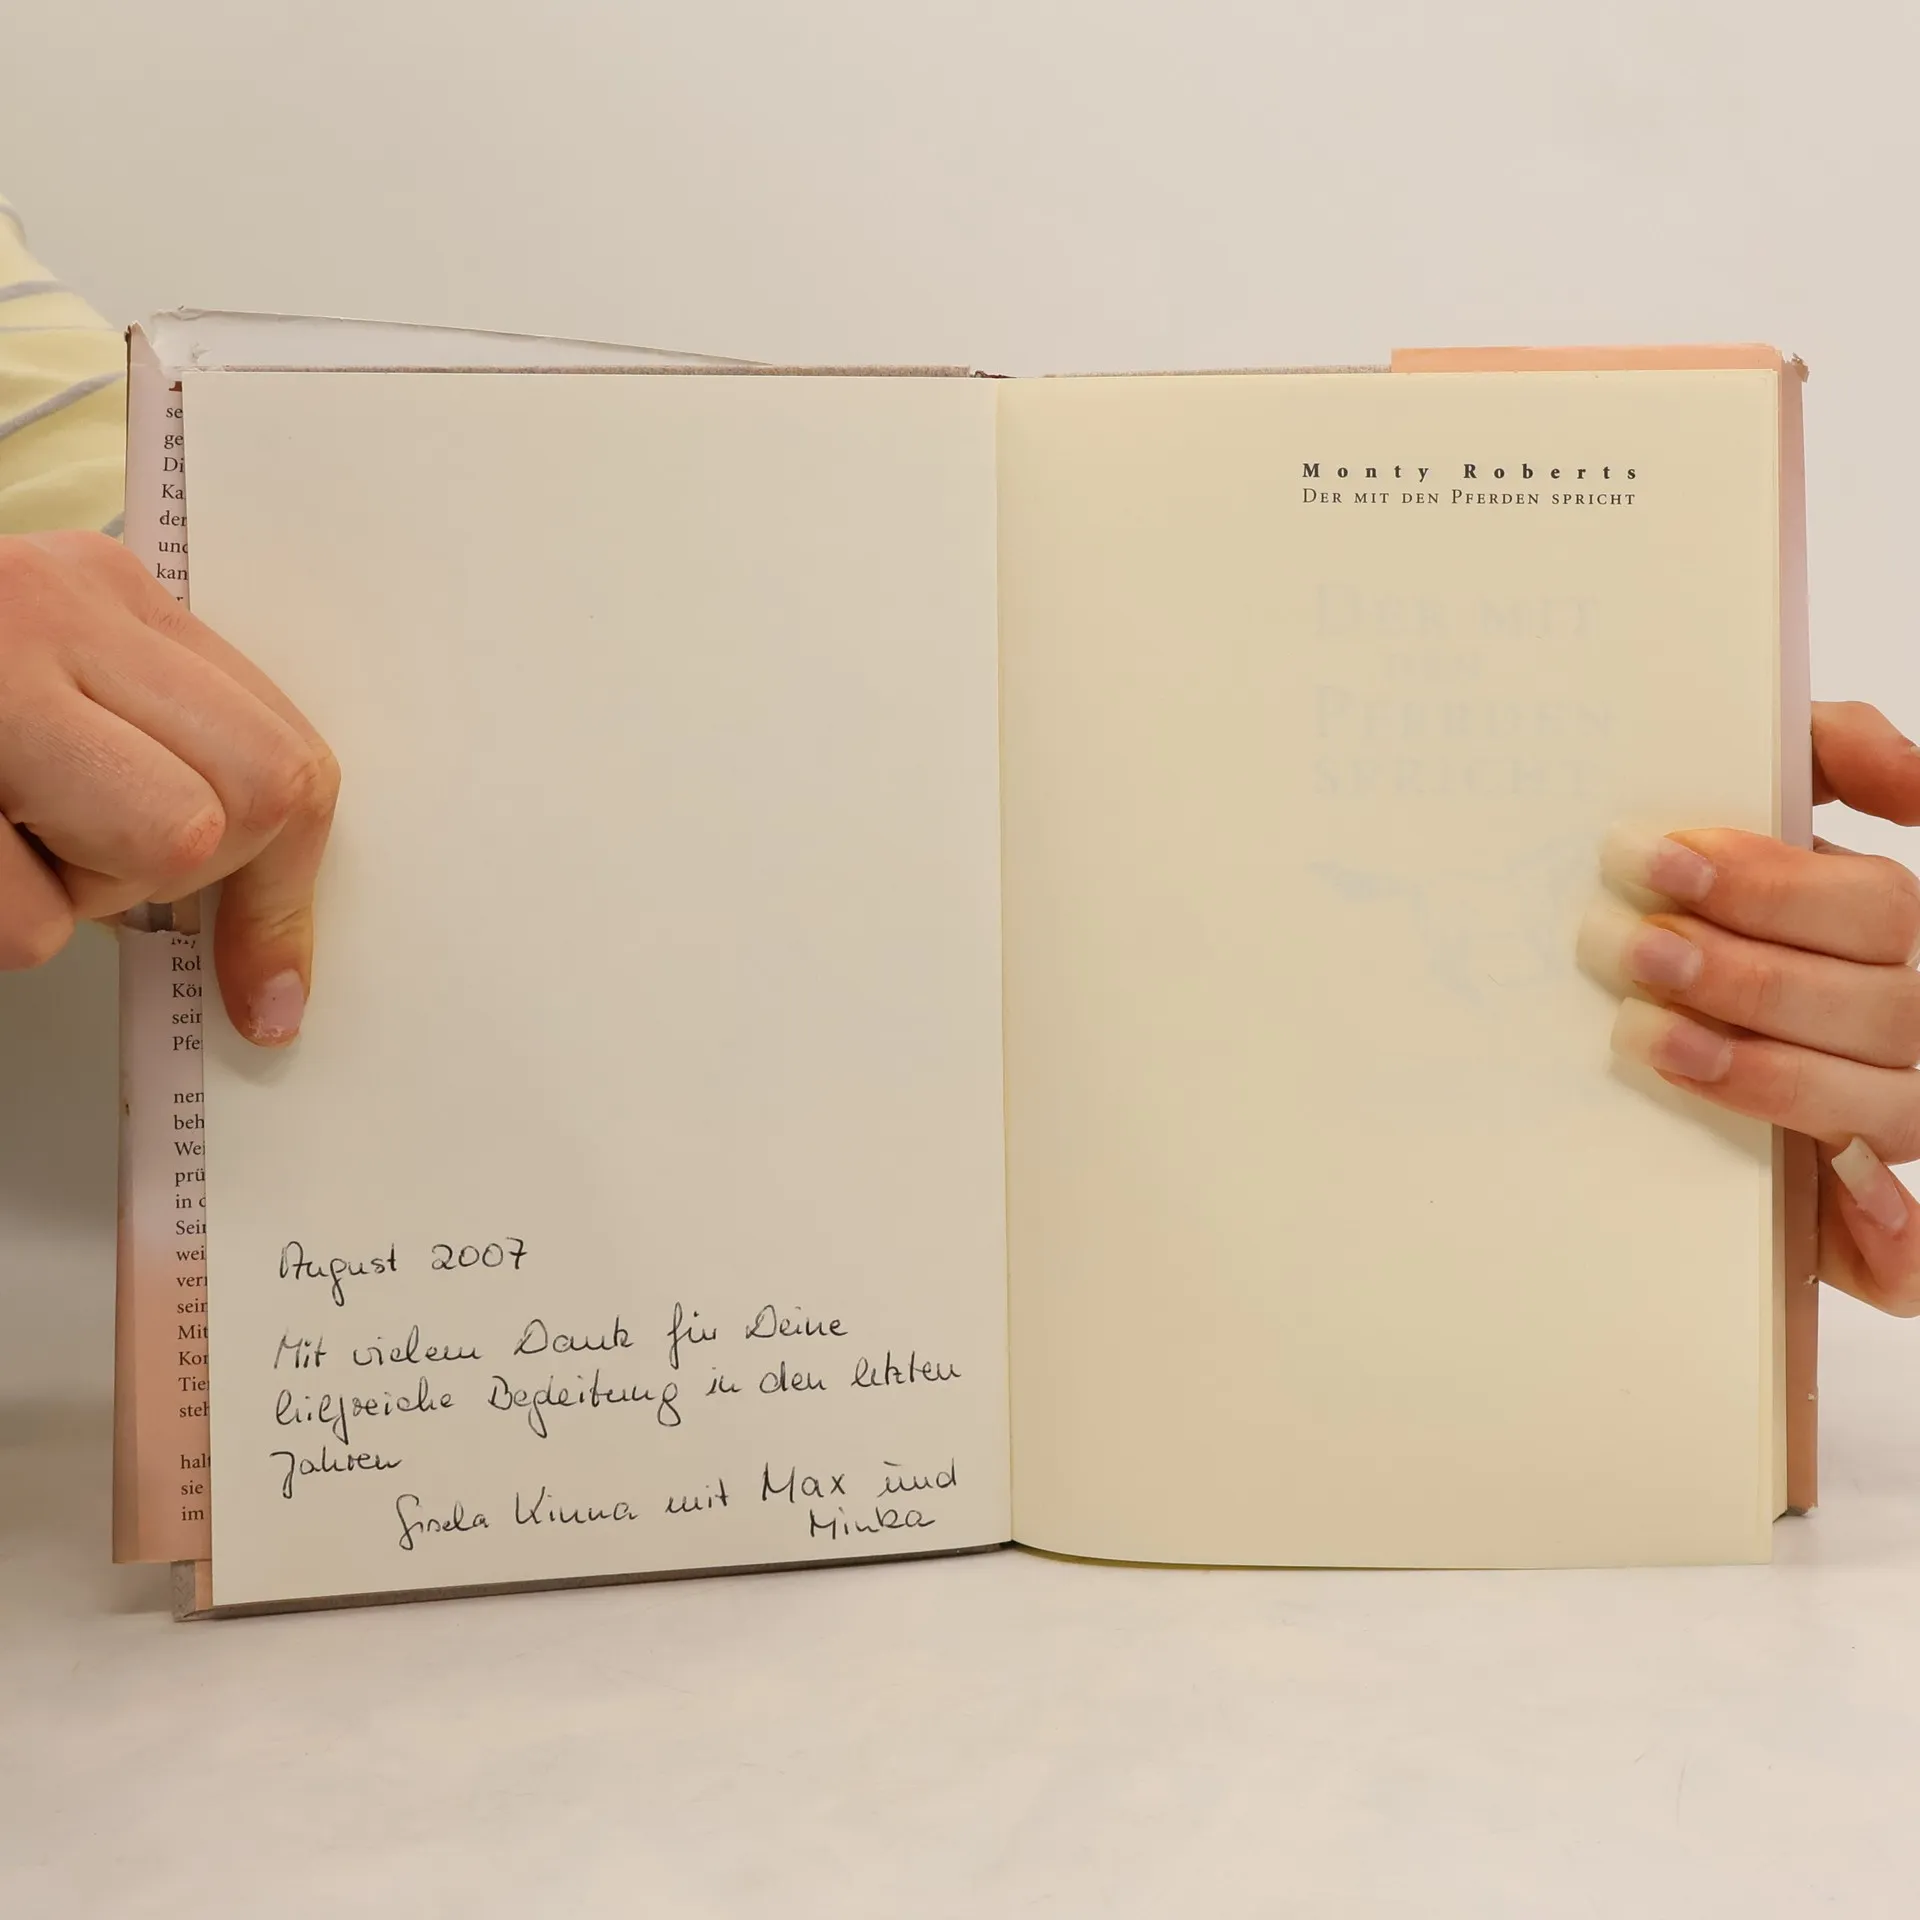 se
ge
Di
Ka
der
und
kan
Rob
Kör
sein
Pfe
nen
beh
Wei
prü
in d
Sein
wei
verr
sein
Mit
Kor
Tie
steh
halt
sie
im
August 2007
Mit vielem Dank für Deine
hilfreiche Begleitung in den letzten
Jahren
Gisela Kinna mit Max und
Minka
Monty Roberts
Der mit den Pferden spricht
Der mit
den
Pferden
spricht